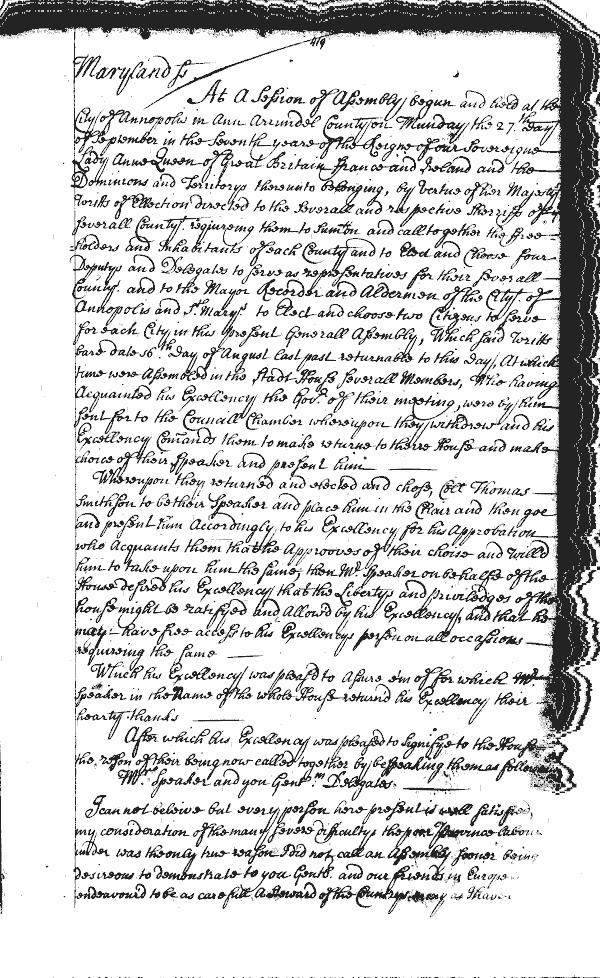 419
Maryland ss
At A Session of Assembly begun and held at the
City of Annopolis in Ann Arundel County on Munday the 27.th day
of September in the Seventh yeare of the Reigne of our Sovereigne
Lady Anne Queen of Great Britain France and Ireland and the
Dominions and Territorys thereunto belonging, by vertue of her Majestys
writts of Ellection directed to the Severall and respective Sherriffs of
Severall County.s requireing them to Sumon and call together the free
holders and Inhabitants of each County and to Elect and Choose four
Deputys and Delegates to Serve as representatives for their Severall
County.s and to the Mayor Recorder and Aldermen of the City.s of
Annopolis and S.t Marys to Elect and choose two Citizens to Serve
for each City in this present Generall Assembly, Which said writts
bare date 16.th day of August last past returnable to this day, At which
time were Assembled in the Stadt House Severall Members, Who having
Acquainted his Excellency the Gov.r of their meeting, were by him
sent for to the Councill Chamber whereupon they withdrew and his
Excellency Comands them to make returne to there House and make
choice of their Speaker and present him
Whereupon they returned and elected and chose, Coll Thomas
Smithson to be their Speaker and place him in the Chair and then goe
and present him Accordingly, to his Excellency for his Approbation
who Acquaints them that he Approoves of their choise and will'd
him to take upon him the same, then M.r Speaker on behalfe of the
House desired his Excellency that the Libertys and priviledges of the
house might be rattifyed and Allowed by his Excellency, and that he
may have free access to his Excellencys person on all occasions
requireing the same
Which his Excellency was pleas'd to Assure em of for which M.r
Speaker in the Name of the whole House returnd his Excellency their
hearty thanks
After which his Excellency was pleased to Signifye to the House
the reason of their being now called together by bespeaking them as follows
M.r Speaker and you Gent.m Delegates
I can not beleive but every person here present is well satisfied,
my consideration of the many Severe difficultys the poor Province labour
under was the only true reason I did not call an Assembly sooner being
desireous to demonstrate to you Gent. and our friends in Europe
endeavourd to be as carefull A Steward of the Countrys money as I have